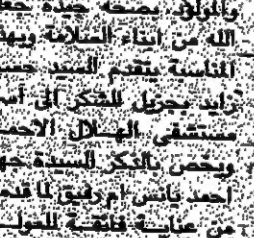 والمولود بصحة جيدة جعل
الله من ابناء السلامة وبهذ
المناسبة يتقدم السيد حسـ
زايد بجزيل الشكر الى أسر
مستشفى الهـلال الاحمـ
ويخص بالذكر السيدة جهـ
احمد يانس ام رفيق لما قدمـ
من عنايـة فائقـة للمولـ